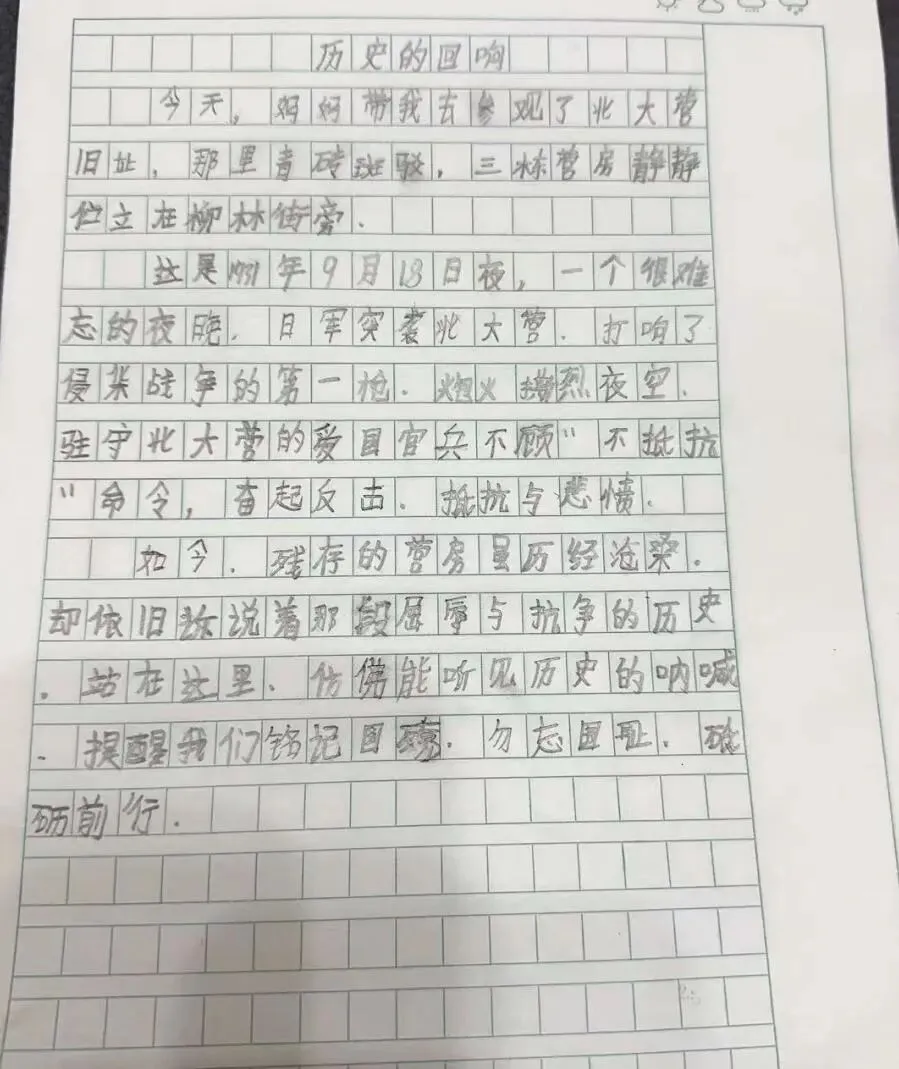 历史的回响
今天，妈妈带我去参观了北大营
旧址，那里青砖斑驳，三栋营房静静
伫立在柳林街旁.
这是1931年9月18日夜，一个很难
忘的夜晚.日军突袭北大营.打响了
侵华战争的第一枪.炮火撕烈夜空.
驻守北大营的爱国官兵不顾"不抵抗
"命令，奋起反击.抵抗与悲愤.
如今.残存的营房虽历经沧桑.
却依旧诉说着那段屈辱与抗争的历史
.站在这里、仿佛能听见历史的呐喊
.提醒我们铭记国殇.勿忘国耻.砥
砺前行.